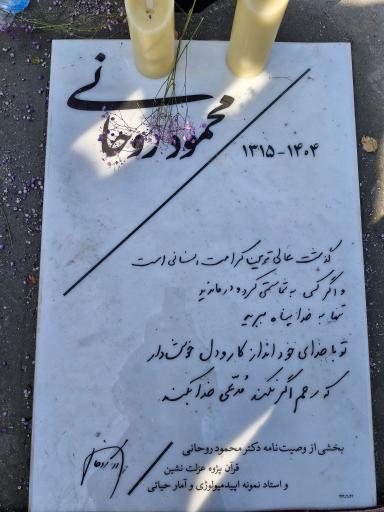 محمود روحانی
۱۳۱۵-۱۴۰۴
گذشت عالی‌ترین کرامت انسانی است
و اگر کسی به شما ستمی کرد و درماندید
تنها به خدا پناه ببرید
تو با خدای خود انداز کار و دل خوش دار
که رحم اگر نکند مدعی خدا بکند
بخشی از وصیت‌نامه دکتر محمود روحانی
قرآن پژوه عزلت نشین
و استاد نمونه اپیدمیولوژی و آمار حیاتی